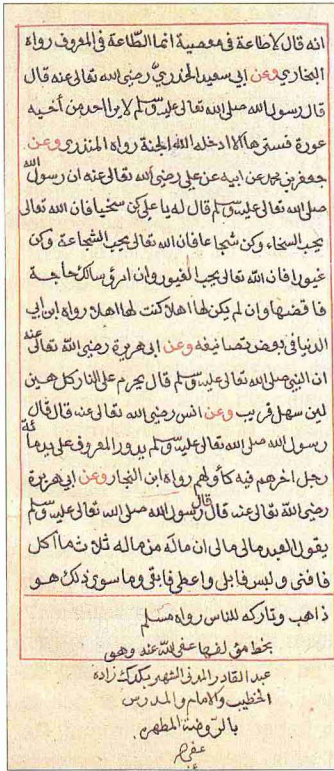 انه قال لا طاعة فى معصية انما الطاعة فى المعروف رواه
البخارى وعن ابى سعيد الخدرى رضى الله تعالى عنه قال
قال رسول الله صلى الله تعالى عليه وسلم لا يرا احد من أخيه
عورة فسترها الا ادخله الله الجنة رواه المنذرى وعن
جعفر بن محمد عن ابيه عن على رضى الله تعالى عنه ان رسول الله
صلى الله تعالى عليه وسلم قال له يا على كن سخيا فان الله تعالى
يحب السخاء وكن شجاعا فان الله تعالى يحب الشجاعة وكن
غيورا فان الله تعالى يحب الغيور وان امرؤ سالك حاجة
فاقضها وان لم يكن لها اهلا كنت لها اهلا رواه ابن ابى
الدنيا فى بعض تصانيفه وعن ابى هريرة رضى الله تعالى عنه
ان النبى صلى الله تعالى عليه وسلم قال يحرم على النار كل هين
لين سهل قريب وعن انس رضى الله تعالى عنه قال قال
رسول الله صلى الله تعالى عليه وسلم يدور المعروف على يد مائة
رجل اخرهم فيه كأولهم رواه ابن النجار وعن ابى هريرة
رضى الله تعالى عنه قال قال رسول الله صلى الله تعالى عليه وسلم
يقول العبد مالى مالى ان ماله من ماله ثلاث ما أكل
فافنى و لبس فابلى واعطى فابقى وما سوى ذلك هو
ذاهب وتاركه للناس رواه مسلم
بخط مؤلفها عفى الله عنه وهو
عبد القادر المدنى الشهير بكدك زاده
الخطيب والامام والمدرس
بالروضة المطهره
عفى عنه